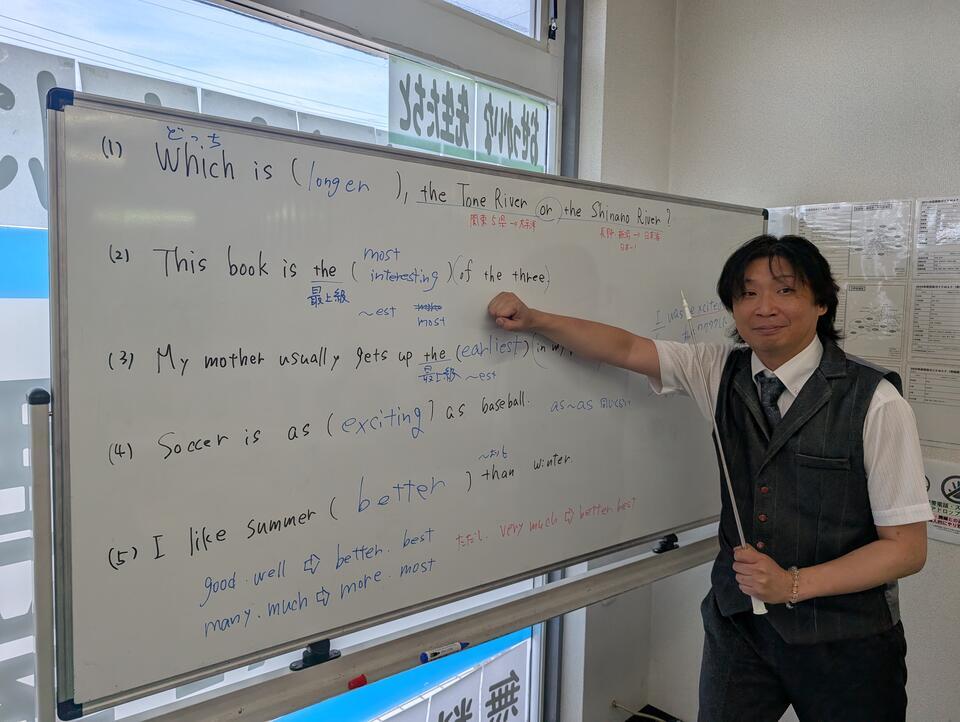 おせっかいな
先生たちと
どっち
(1) Which is (longer), the Tone River or the Shinano River?
関東5県→太平洋
長野 新潟→日本海
日本一
(2) This book is the (most interesting) (of the three)
最上級 ~est most
I was excited
(3) My mother usually gets up the (earliest) (in my
最上級 ~est
(4) Soccer is as (exciting) as baseball. as~as
~よりも
(5) I like summer (better) than winter.
good.well ⇨ better.best
ただし、very much ⇨ better best
many.much ⇨ more.most
無料